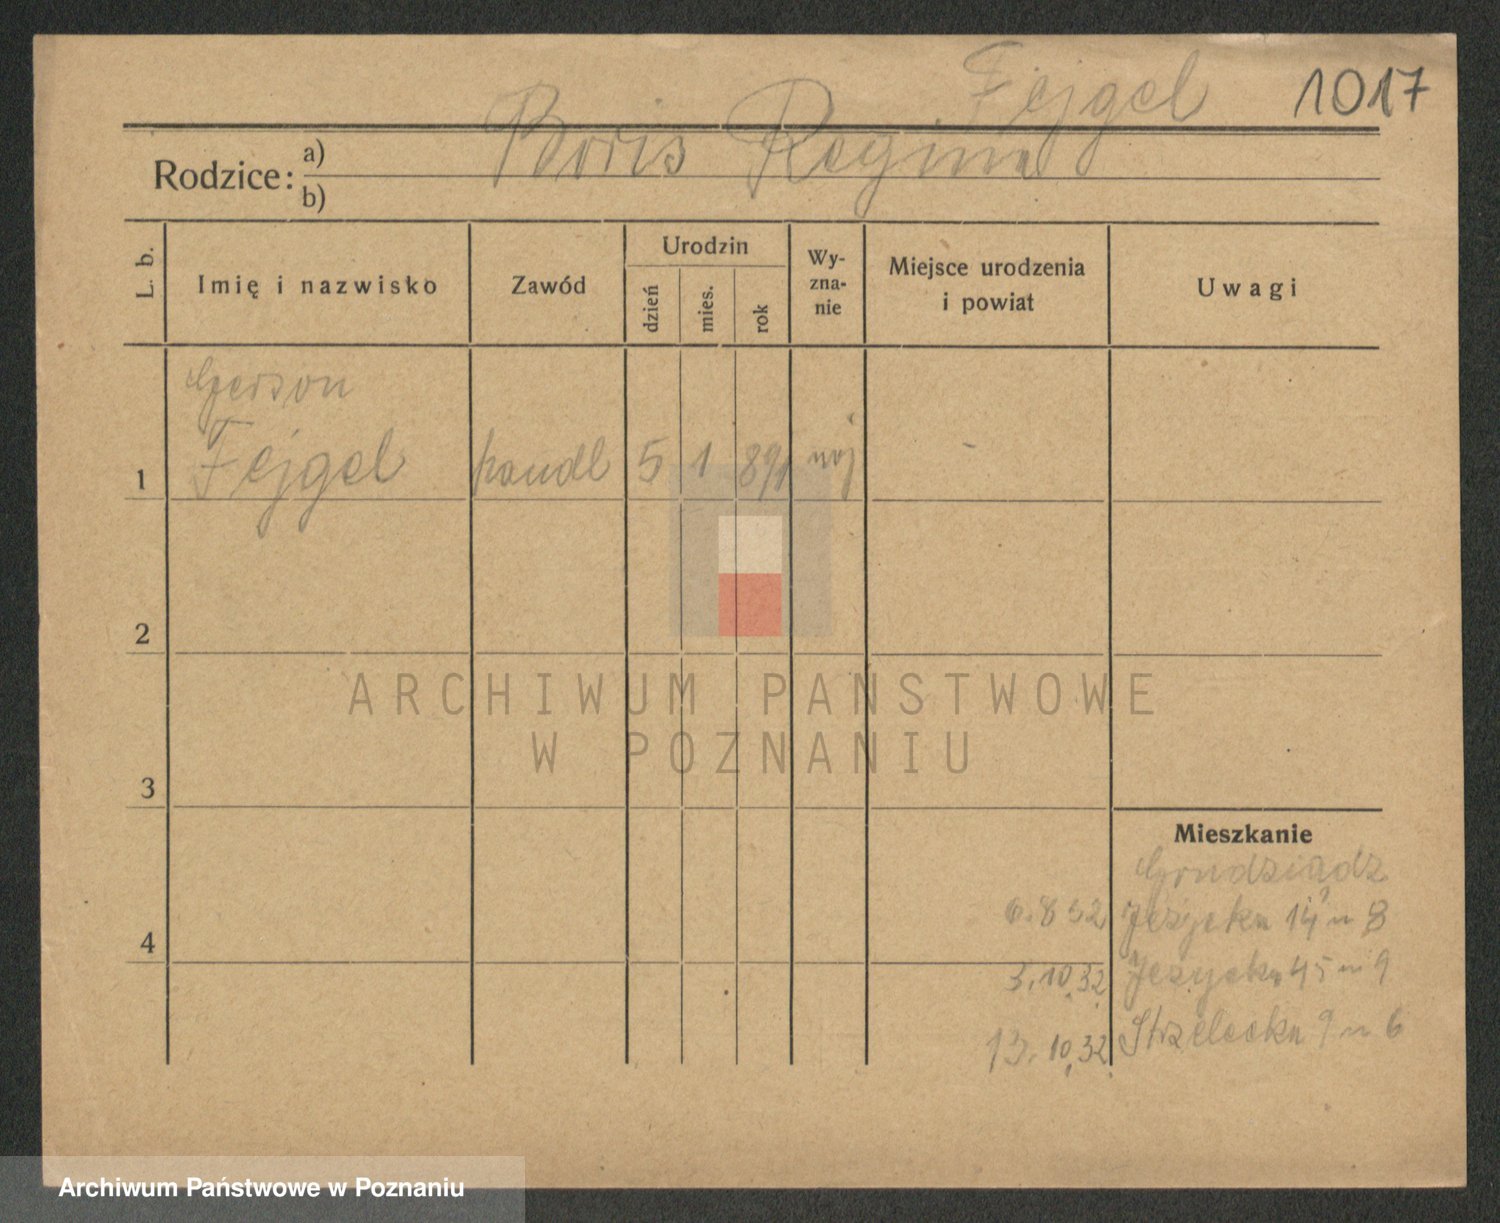 Fejgel 1017
Boris Regina
Rodzice: a)
b)
L. b.
Imię i nazwisko
Zawód
Urodzin
dzień
mies.
rok
Wy-
zna-
nie
Miejsce urodzenia
i powiat
Uwagi
Gerson
1 Fejgel handl 5 1 891 moj -
2
ARCHIWUM PAŃSTWOWE
W POZNANIU
3
Mieszkanie
Grudziądz
6.8 32 Jeżycka 14 m 8
4
3.10.32 Jeżycka 45 m 9
13.10.32 Strzelecka 9 m 6
Archiwum Państwowe w Poznaniu